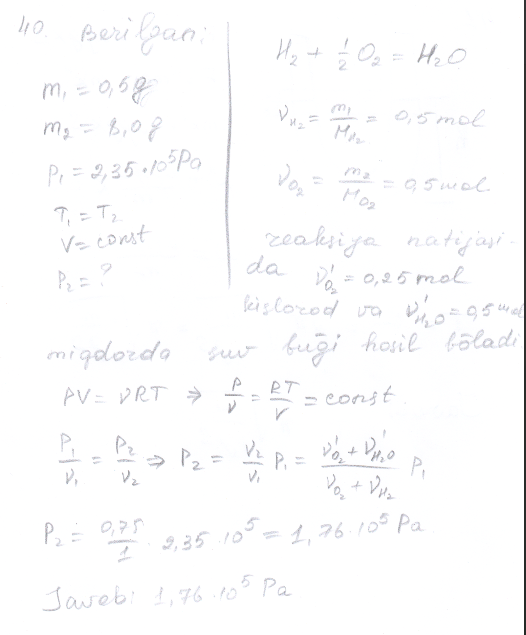 40. Berilgan:
m₁ = 0,5g
m₂ = 8,0 g
P₁ = 2,35 · 10⁵ Pa
T₁ = T₂
V = const
P₂ = ?
H₂ + ½ O₂ = H₂O
ν_H₂ = m₁/M_H₂ = 0,5 mol
ν_O₂ = m₂/M_O₂ = 0,5 mol
reaksiya natijasi-
da ν'_O₂ = 0,25 mol
kislorod va ν'_H₂O = 0,5 mol
miqdorda suv bug'i hosil bōladi
PV = νRT ⇒ P/ν = RT/V = const.
P₁/ν₁ = P₂/ν₂ ⇒ P₂ = ν₂/ν₁ P₁ = (ν'_O₂ + ν'_H₂O)/(ν_O₂ + ν_H₂) P₁
P₂ = 0,75/1 · 2,35 · 10⁵ = 1,76 · 10⁵ Pa
Javobi 1,76 · 10⁵ Pa